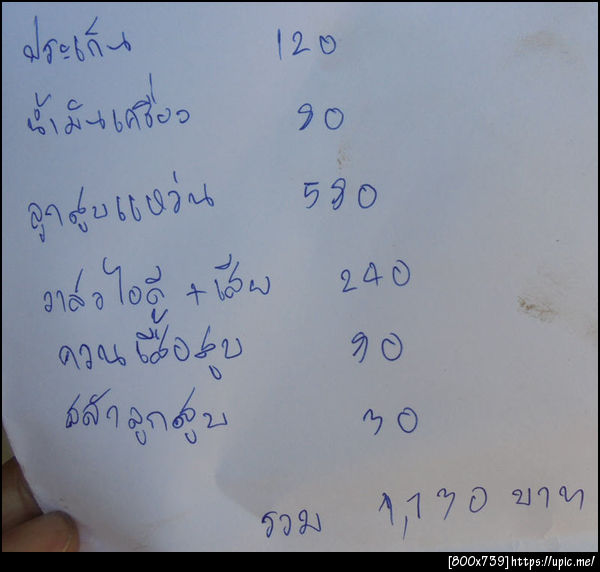 ประเก็น 120
น้ำมันเครื่อง 80
ลูกสูบแหว่น 580
วาล์วไอดี + เสีย 240
ควนเสื้อสูบ 80
ลูกสูบ 30
รวม 1,130 บาท
[800x739] https://upic.me/